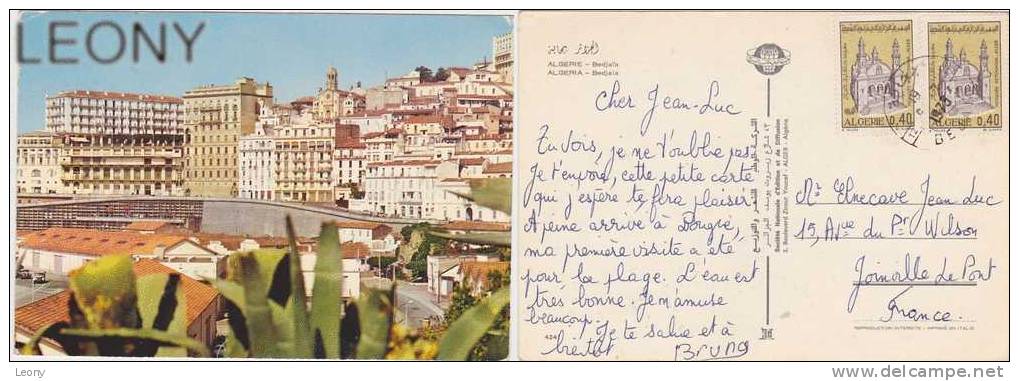 LEONY
ALGERIE - Bedjaïa
ALGERIA - Bedjaia
Cher Jean-Luc
Tu vois, je ne t'oublie pas
Je t'envoie, cette petite carte
qui j'espère te fera plaisir
A peine arrivé à Bougie,
ma première visite a été
pour la plage. L'eau est
très bonne. Je m'amuse
beaucoup. Je te salue et à
bientôt
Bruno
434
Société Nationale d'Edition et de Diffusion
3, Boulevard Zirout Youcef - ALGER - Algérie
ALGERIE 0,40
ALGERIE 0,40
Mr Elnecave Jean Luc
15, Avue du Pt Wilson
Joinville Le Pont
France
REPRODUCTION INTERDITE - IMPRIMÉ EN ITALIE
Leony
delcampe.net